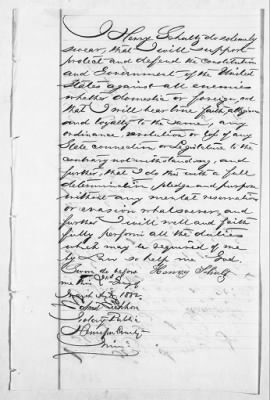 I Henry Schultz do solemnly
swear, that I will support
protect and defend the constitution
and Government of the United
States against all enemies
whether domestic or foreign, and
that I will bear true faith allegiance
and loyalty to the same, any
ordinance, resolution or law of any
State convention or Legislature to the
contrary notwithstanding, and
further, that I do this with a full
determination, pledge and purpose
without any mental reservation
or evasion whatsoever, and
further I will well and faith
fully perform all the duties
which may be required of me
by Law so help me God.
Sworn to before Henry Schultz
me this day
1882
Notary Public
Hennepin County
Minn